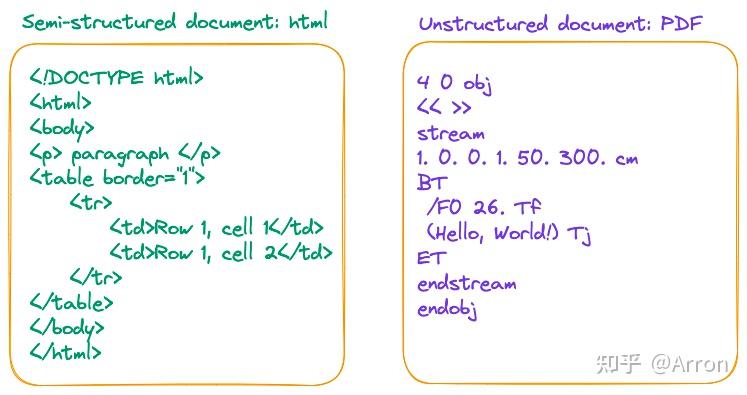 Semi-structured document: html
<!DOCTYPE html>
<html>
<body>
<p> paragraph </p>
<table border="1">
<tr>
<td>Row 1, cell 1</td>
<td>Row 1, cell 2</td>
</tr>
</table>
</body>
</html>
Unstructured document: PDF
4 0 obj
<< >>
stream
1. 0. 0. 1. 50. 300. cm
BT
/F0 26. Tf
(Hello, World!) Tj
ET
endstream
endobj
知乎 @Arron